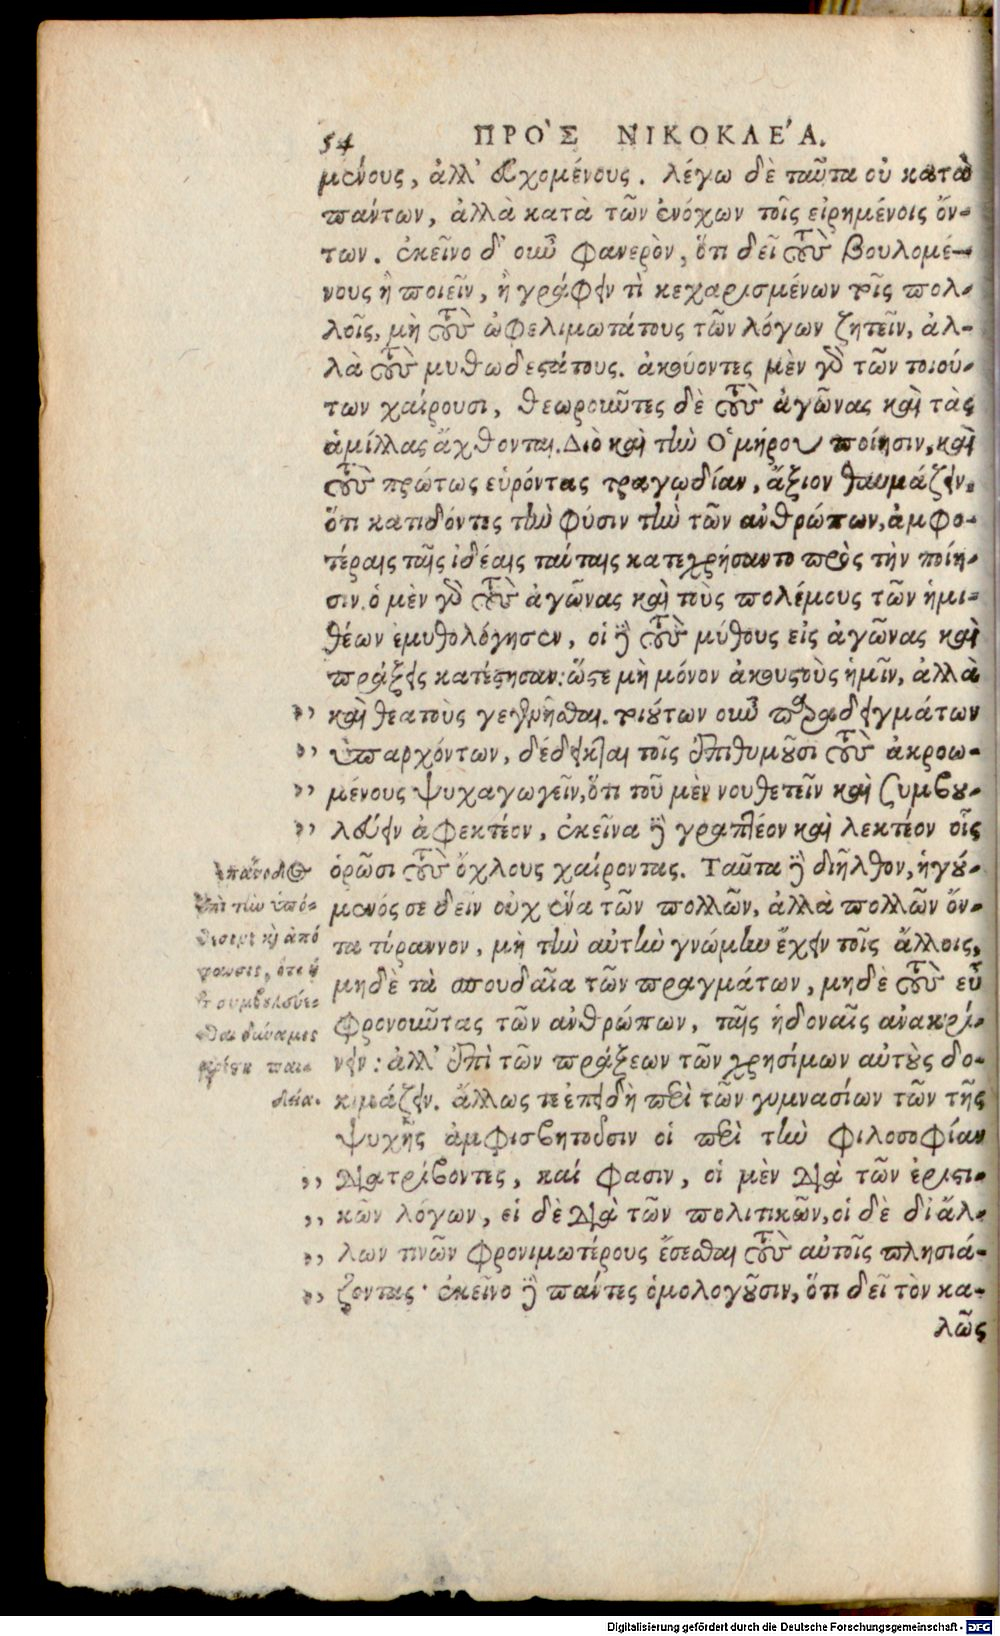 54 ΠΡΟ'Σ ΝΙΚΟΚΛΕ'Α.
μένους, ἀλλ' εὐχομένους. λέγω δὲ ταῦτα οὐ κατὰ
πάντων, ἀλλὰ κατὰ τῶν ἐνόχων τοῖς εἰρημένοις ὄν-
των. ἐκεῖνο δ' οὖν φανερὸν, ὅτι δεῖ τοὺς βουλομέ-
νους ἢ ποιεῖν, ἢ γράφειν τὶ κεχαρισμένων τοῖς πολ-
λοῖς, μὴ τοὺς ὠφελιμωτάτους τῶν λόγων ζητεῖν, ἀλ-
λὰ τοὺς μυθωδεστάτους. ἀκούοντες μὲν γὰρ τῶν τοιού-
των χαίρουσι, θεωροῦντες δὲ τοὺς ἀγῶνας καὶ τὰς
ἁμίλλας ἄχθονται. Διὸ καὶ τὴν Ὁμήρου ποίησιν, καὶ
τοὺς πρώτως εὑρόντας τραγῳδίαν, ἄξιον θαυμάζειν.
ὅτι κατιδόντες τὴν φύσιν τὴν τῶν ἀνθρώπων, ἀμφο-
τέραις ταῖς ἰδέαις ταύταις κατεχρήσαντο πρὸς τὴν ποίη-
σιν. ὁ μὲν γὰρ τοὺς ἀγῶνας καὶ τοὺς πολέμους τῶν ἡμι-
θέων ἐμυθολόγησεν, οἱ δὲ τοὺς μύθους εἰς ἀγῶνας καὶ
πράξεις κατέστησαν: ὥστε μὴ μόνον ἀκουστοὺς ἡμῖν, ἀλλὰ
,, καὶ θεατοὺς γενέσθαι. τοιούτων οὖν παραδειγμάτων
,, ὑπαρχόντων, δέδεικται τοῖς ἐπιθυμοῦσι τοὺς ἀκροω-
,, μένους ψυχαγωγεῖν, ὅτι τοῦ μὲν νουθετεῖν καὶ συμβου-
,, λεύειν ἀφεκτέον, ἐκεῖνα δὲ γραπτέον καὶ λεκτέον οἷς
ὁρῶσι τοὺς ὄχλους χαίροντας. Ταῦτα δὲ διῆλθον, ἡγού-
μενός σε δεῖν οὐχ ἕνα τῶν πολλῶν, ἀλλὰ πολλῶν ὄν-
τα τύραννον, μὴ τὴν αὐτὴν γνώμην ἔχειν τοῖς ἄλλοις,
μηδὲ τὰ σπουδαῖα τῶν πραγμάτων, μηδὲ τοὺς εὖ
φρονοῦντας τῶν ἀνθρώπων, ταῖς ἡδοναῖς ἀνακρί-
νειν: ἀλλ' ἐπὶ τῶν πράξεων τῶν χρησίμων αὐτοὺς δο-
κιμάζειν. ἄλλως τε ἐπειδὴ περὶ τῶν γυμνασίων τῶν τῆς
ψυχῆς ἀμφισβητοῦσιν οἱ περὶ τὴν φιλοσοφίαν
,, διατρίβοντες, καί φασιν, οἱ μὲν διὰ τῶν ἐριστι-
,, κῶν λόγων, οἱ δὲ διὰ τῶν πολιτικῶν, οἱ δὲ δι' ἄλ-
,, λων τινῶν φρονιμωτέρους ἔσεσθαι τοὺς αὐτοῖς πλησιά-
,, ζοντας· ἐκεῖνο δὲ πάντες ὁμολογοῦσιν, ὅτι δεῖ τὸν κα-
λῶς
ἐπάνοδος
ἐπὶ τὴν ὑπό-
θεσιν καὶ ἀπό
φανσις, ὅτι ἡ
τοῦ συμβουλεύε-
σθαι δύναμις
παι-
δεία.
Digitalisierung gefördert durch die Deutsche Forschungsgemeinschaft - DFG